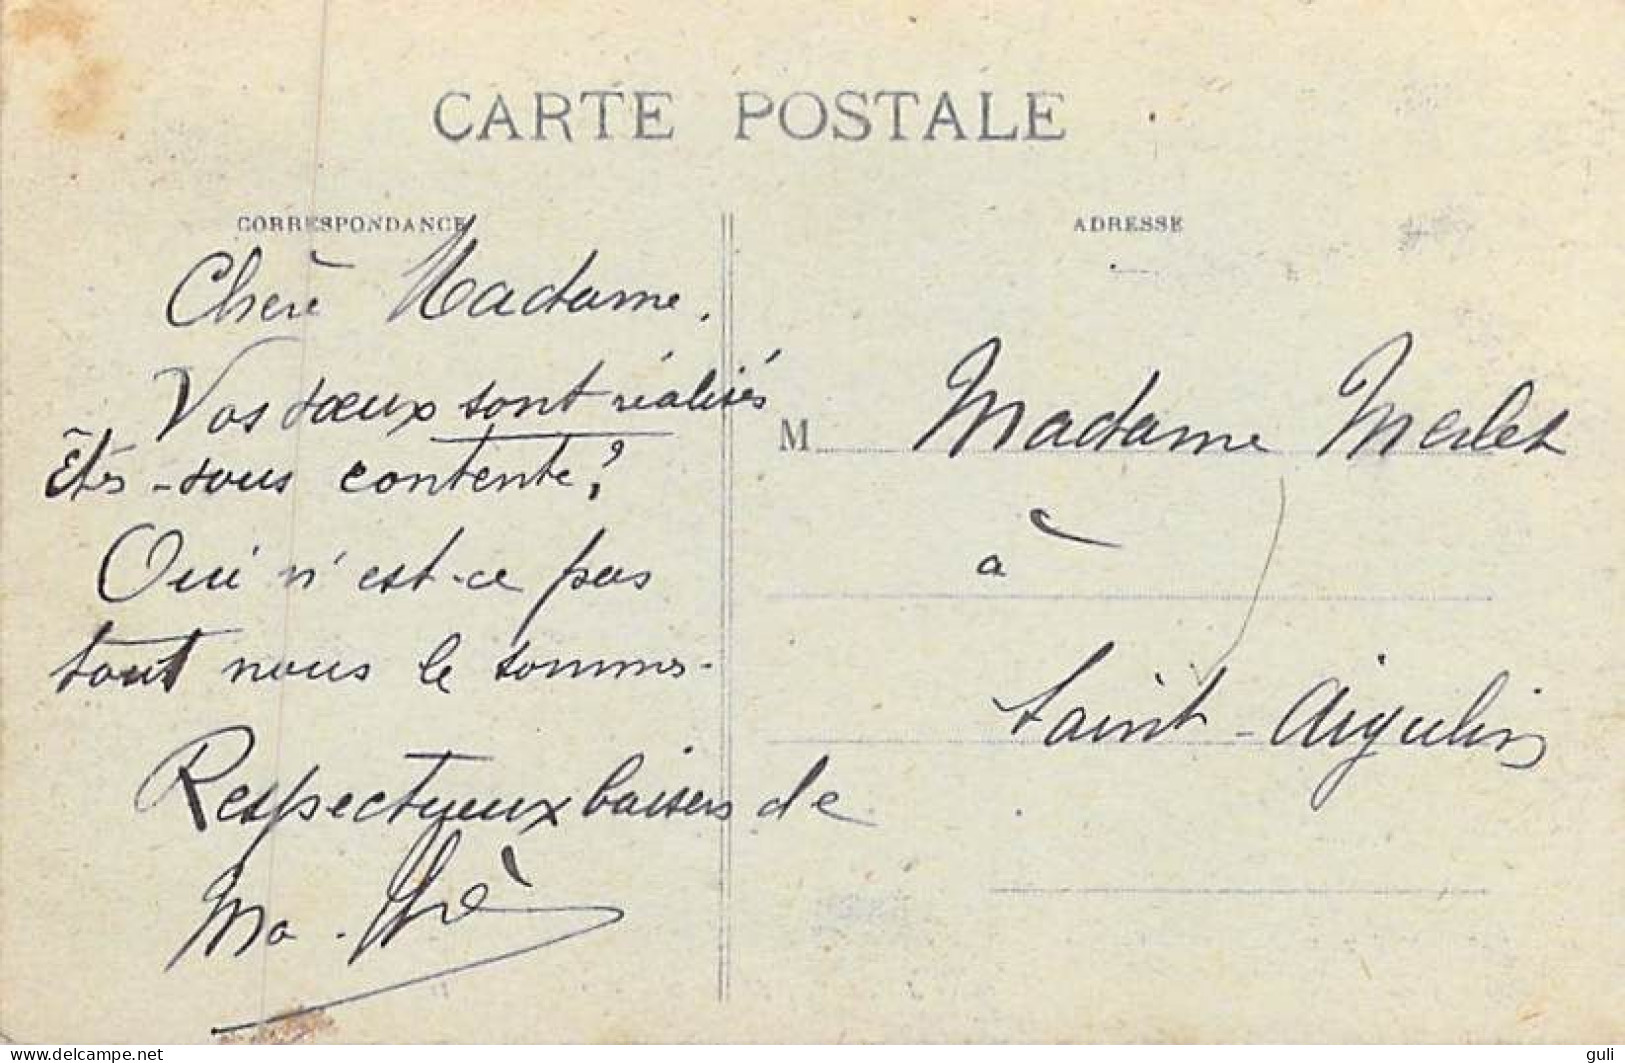 CARTE POSTALE
CORRESPONDANCE
ADRESSE
Chère Madame.
Vos vœux sont réalisés
Êtes-vous contente?
Oui n'est-ce pas
tous nous le sommes.
Respectueux baisers de
M
Madame Merlet
à
Saint-Aigulin
delcampe.net
guli